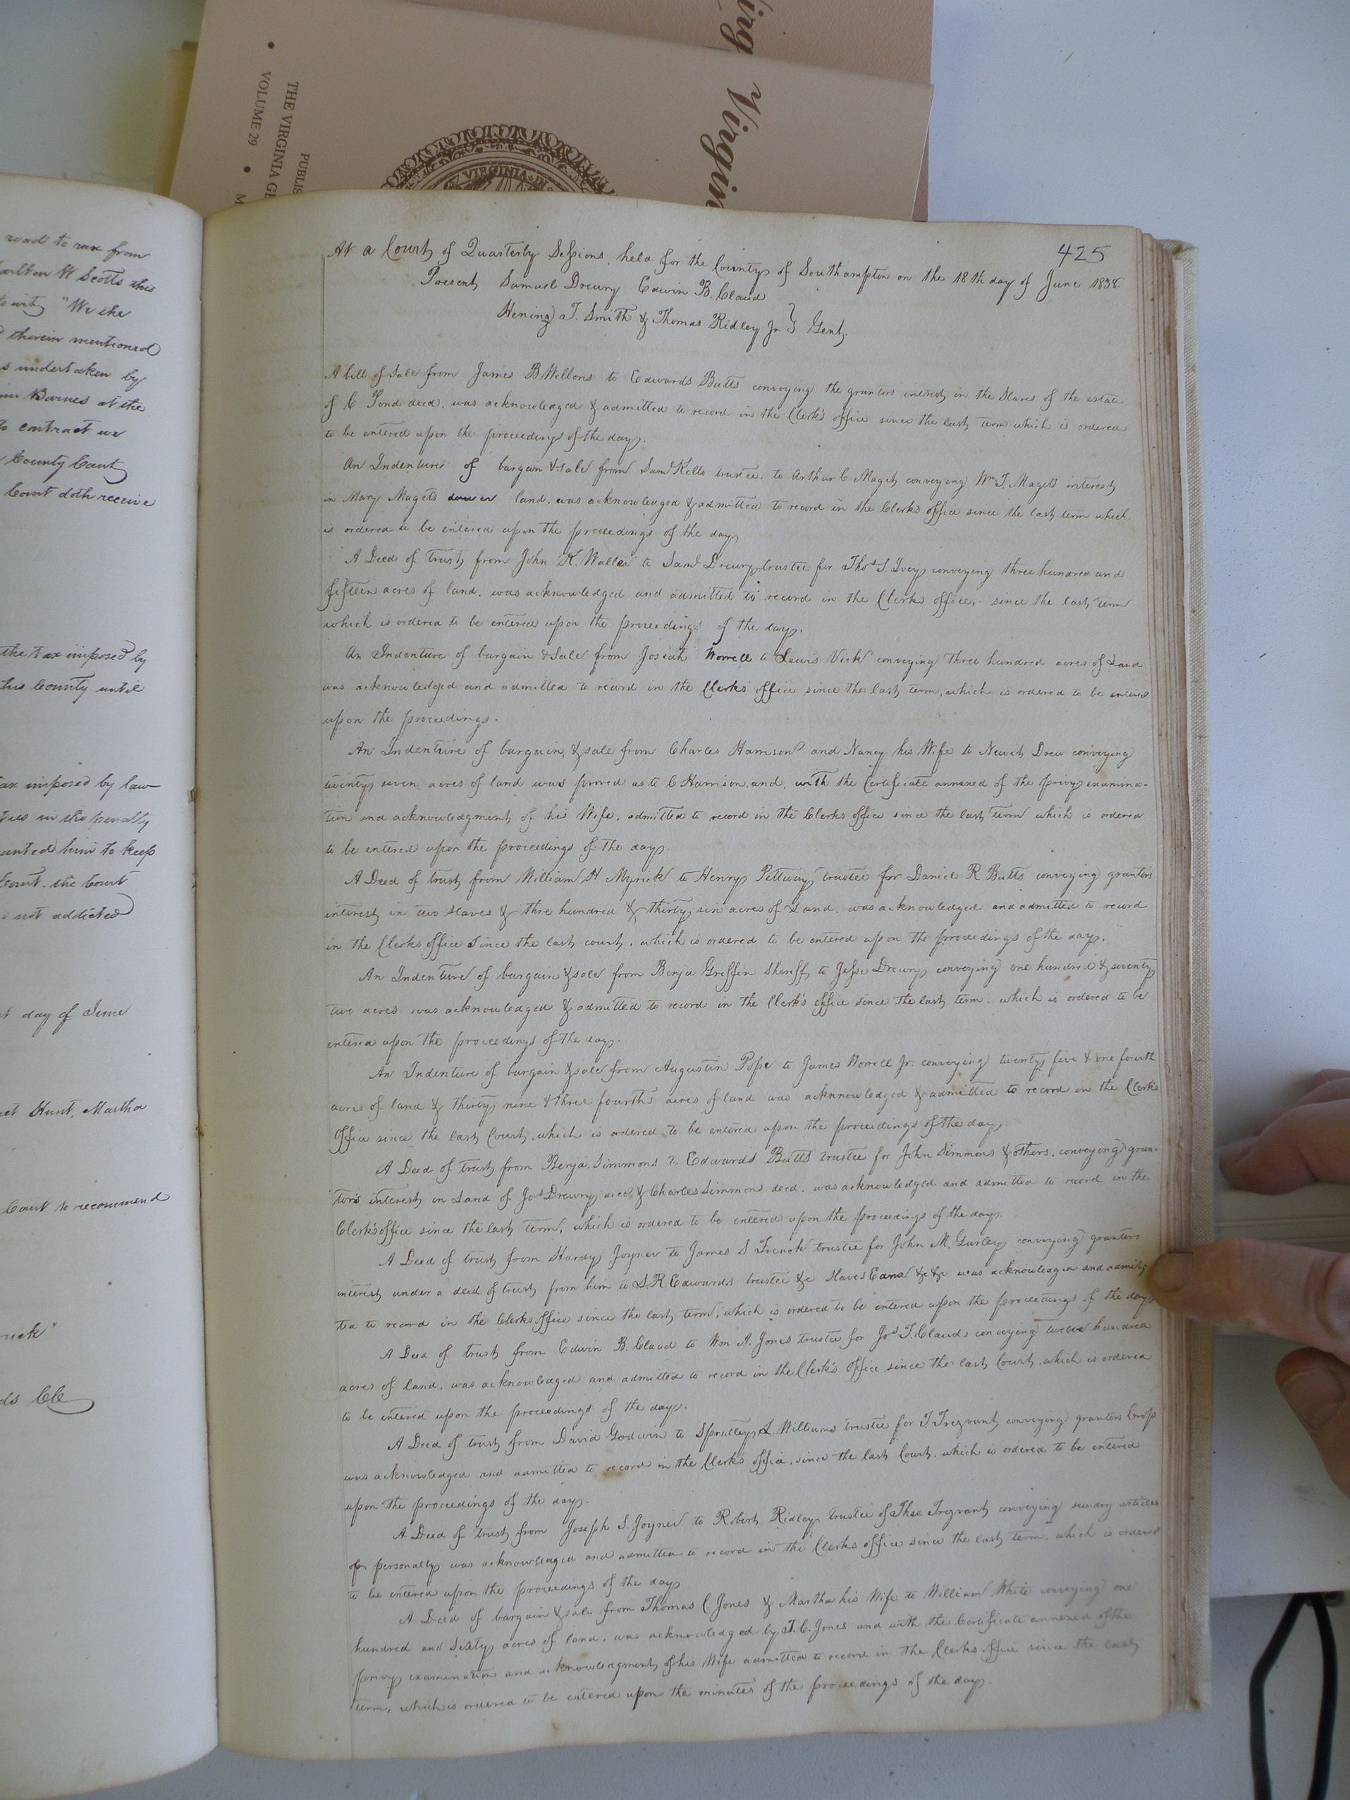 Virginia
VOLUME 29
THE VIRGINIA
VIRGINIA
road to run from
Scotts
"We the
therein mentioned
undertaken by
Barnes at the
to contract
County Court
Court doth receive
the tax imposed by
this County until
tax imposed by law
in the penalty
granted him to keep
Court. the Court
not addicted
day of June
Hunt, Martha
Court to recommend
425
At a Court of Quarterly Sessions, held for the County of Southampton on the 18th day of June 1838
Present Samuel Drewry Edwin B. Claud
T. Smith & Thomas Ridley Jr } Gent.
A bill of Sale from James B Wellons to Edwards Butts conveying the grantors interest in the Slaves of the estate
of C Pond decd. was acknowledged & admitted to record in the Clerk's office since the last term which is ordered
to be entered upon the proceedings of the day.
An Indenture of bargain & sale from Saml Kello trustee to Arthur C Magett conveying Wm T. Magetts interest
in Mary Magets dower land. was acknowledged & admitted to record in the Clerks office since the last term which
is ordered to be entered upon the proceedings of the day
A Deed of trust from John K Waller to Saml Drewry trustee for Thos S Ivey conveying three hundred and
fifteen acres of land. was acknowledged and admitted to record in the Clerks office, since the last term
which is ordered to be entered upon the proceedings of the day.
An Indenture of bargain & sale from Josiah Worrell to Lewis Vick conveying three hundred acres of Land
was acknowledged and admitted to record in the Clerks' office since the last term, which is ordered to be entered
upon the proceedings.
An Indenture of bargain & sale from Charles Harrison and Nancy his Wife to Newit Drew conveying
twenty seven acres of land was proved as to C Harrison and, with the Certificate annexed of the privy examina-
tion and acknowledgment of his Wife, admitted to record in the Clerks office since the last term which is ordered
to be entered upon the proceedings of the day.
A Deed of trust from William H Myrick to Henry Pettway trustee for Daniel R Butts conveying grantors
interest in two slaves & three hundred & thirty six acres of Land. was acknowledged and admitted to record
in the Clerks office since the last court, which is ordered to be entered upon the proceedings of the day.
An Indenture of bargain & sale from Benja Griffin Sheriff to Jesse Drewry conveying one hundred & seventy
two acres. was acknowledged & admitted to record in the Clerk's office since the last term. which is ordered to be
entered upon the proceedings of the day.
An Indenture of bargain & sale from Augustin Pope to James Worrell Jr. conveying twenty five & one fourth
acres of land & thirty nine & three fourths acres of land was acknowledged & admitted to record in the Clerks
Office since the last Court, which is ordered to be entered upon the proceedings of the day
A Deed of trust from Benja. Simmons to Edwards Butts trustee for John Simmons & others, conveying gran-
tors interest in Land of Jos Drewry decd & Charles Simmons decd. was acknowledged and admitted to record in the
Clerk's office since the last term, which is ordered to be entered upon the proceedings of the day.
A Deed of trust from Hardy Joyner to James S French trustee for John M. Gurley conveying grantors
interest under a deed of trust from him to S.R. Edwards trustee &c slaves &c &c was acknowledged and admit-
ted to record in the Clerks office since the last term, which is ordered to be entered upon the proceedings of the day
A Deed of trust from Edwin B. Claud to Wm A. Jones trustee for Jos T. Claud conveying twelve hundred
acres of land, was acknowledged and admitted to record in the Clerk's office since the last Court, which is ordered
to be entered upon the proceedings of the day.
A Deed of trust from David Godwin to Spratley Williams trustee for T. Trezvant conveying grantors Crops
was acknowledged and admitted to record in the Clerks office, since the last Court, which is ordered to be entered
upon the proceedings of the day.
A Deed of trust from Joseph S Joyner to Robert Ridley trustee of Theo Trezvant conveying sundry articles
of personalty was acknowledged and admitted to record in the Clerks office since the last term, which is ordered
to be entered upon the proceedings of the day
A Deed of bargain & sale from Thomas C Jones & Martha his Wife to William White conveying one
hundred and sixty acres of land. was acknowledged by T. C. Jones and with the Certificate annexed of the
privy examination and acknowledgment of his Wife admitted to record in the Clerks office since the last
term, which is ordered to be entered upon the minutes of the proceedings of the day.